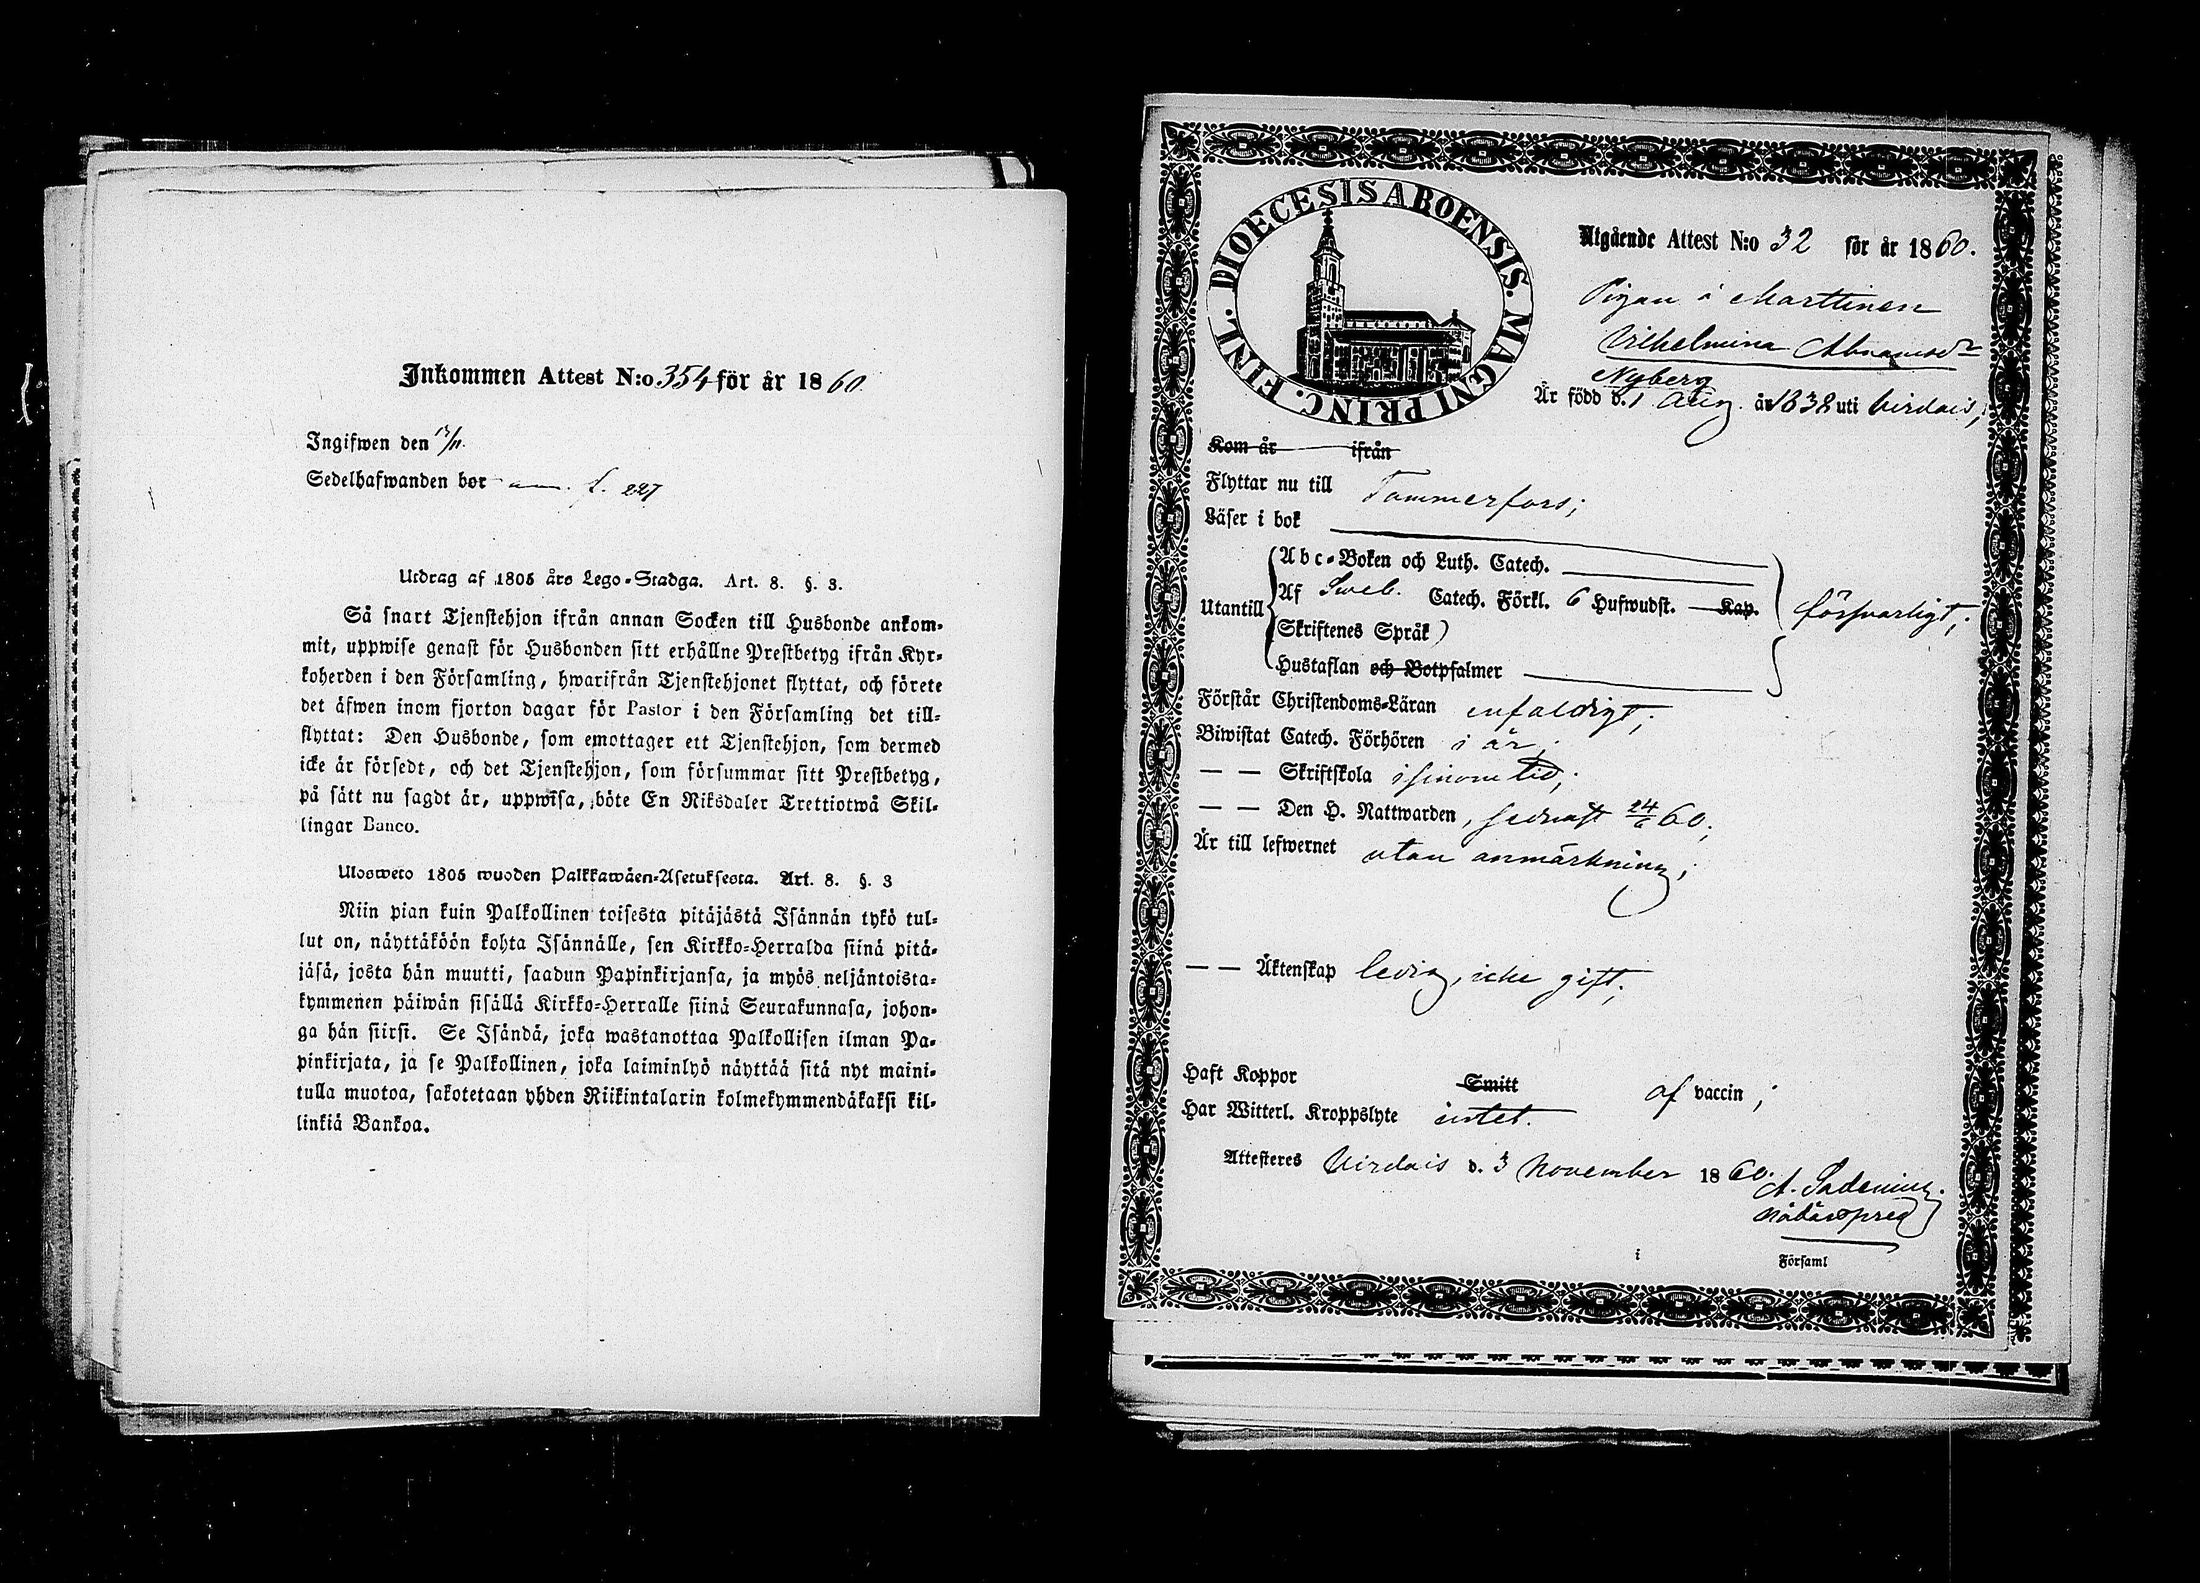 Inkommen Attest N:o 354 för år 1860
Ingifwen den 17/11.
Sedelhafwanden bor f. 227
Utdrag af 1805 års Lego-Stadga. Art. 8. §. 3.
Så snart Tjenstehjon ifrån annan Socken till Husbonde ankom-
mit, uppwise genast för Husbonden sitt erhållne Prestbetyg ifrån Kyr-
koherden i den Församling, hwarifrån Tjenstehjonet flyttat, och förete
det äfwen inom fjorton dagar för Pastor i den Församling det till-
flyttat: Den Husbonde, som emottager ett Tjenstehjon, som dermed
icke är försedt, och det Tjenstehjon, som försummar sitt Prestbetyg,
på sätt nu sagdt är, uppwisa, böte En Riksdaler Trettiotwå Skil-
lingar Banco.
Ulosweto 1805 wuoden Palkkawäen-Asetuksesta. Art. 8. §. 3
Niin pian kuin Palkollinen toisesta pitäjästä Isännän tykö tul-
lut on, näyttäköön kohta Isännälle, sen Kirkko-Herralda siinä pitä-
jäsä, josta hän muutti, saadun Papinkirjansa, ja myös neljäntoista-
kymmenen päiwän sisällä Kirkko-Herralle siinä Seurakunnasa, johon-
ga hän siirsi. Se Isändä, joka wastanottaa Palkollisen ilman Pa-
pinkirjata, ja se Palkollinen, joka laiminlyö näyttää sitä nyt maini-
tulla muotoa, sakotetaan yhden Riikintalarin kolmekymmendäkaksi kil-
linkiä Bankoa.
DIOECESIS ABOENSIS. MAGNI PRINC. FINL.
Utgående Attest N:o 32 för år 1860.
Pigan å Marttinen
Vilhelmina Abramsdr
Nyberg
Är född d. 1 Aug. år 1838 uti Virdois,
Kom år ifrån
Flyttar nu till Tammerfors;
Läser i bok
Abc-Boken och Luth. Catech.
Utantill Af Sveb. Catech. Förkl. 6 Hufwudst. Kap. försvarligt;
Skriftenes Språk
Hustaflan och Botpsalmer
Förstår Christendoms-Läran enfaldigt;
Biwistat Catech. Förhören i år;
— — Skriftskola i sinom tid;
— — Den H. Nattwarden, sednast 24/6 60;
Är till lefwernet utan anmärkning;
— — Äktenskap ledig, icke gift;
Haft Koppor Smitt af vaccin;
Har Witterl. Kroppslyte intet.
Attesteres Virdois d. 3 November 1860.
nådårspred
i Församl